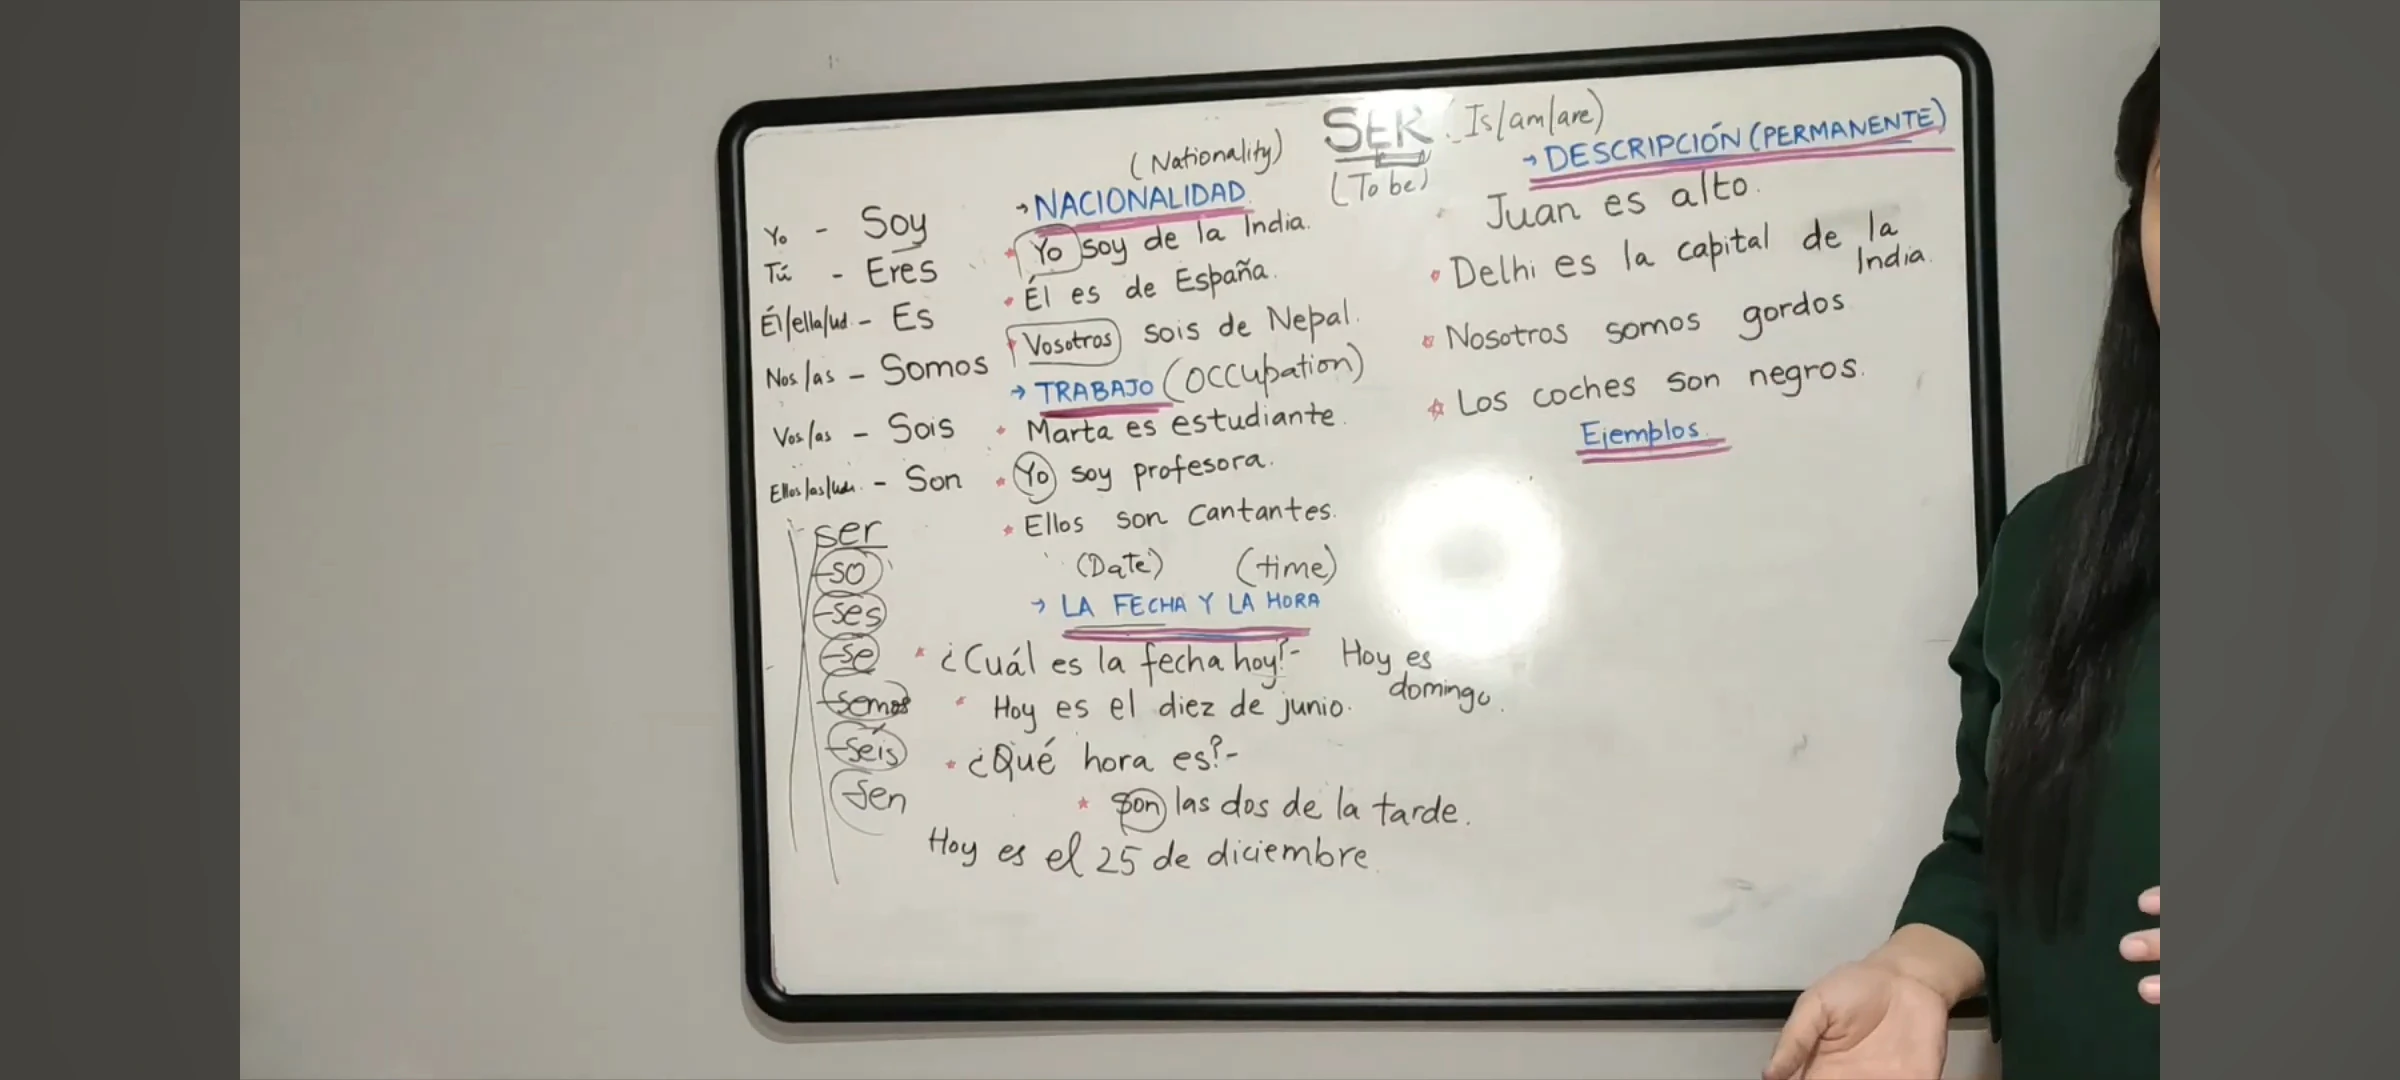 SER. Is/am/are)
(To be)
Yo - Soy
Tú - Eres
Él/ella/ud. - Es
Nos/as - Somos
Vos/as - Sois
Ellos/as/uds. - Son
ser
-so
-ses
-se
-semos
-seís
-sen
(Nationality)
→ NACIONALIDAD
Yo soy de la India.
Él es de España.
Vosotros sois de Nepal.
→ TRABAJO (Occupation)
Marta es estudiante.
Yo soy profesora.
Ellos son cantantes.
(Date) (time)
→ LA FECHA Y LA HORA
¿Cuál es la fecha hoy?- Hoy es
domingo.
Hoy es el diez de junio.
¿Qué hora es?-
Son las dos de la tarde.
Hoy es el 25 de diciembre.
→ DESCRIPCIÓN (PERMANENTE)
Juan es alto.
Delhi es la capital de la
India.
Nosotros somos gordos
Los coches son negros.
Ejemplos.